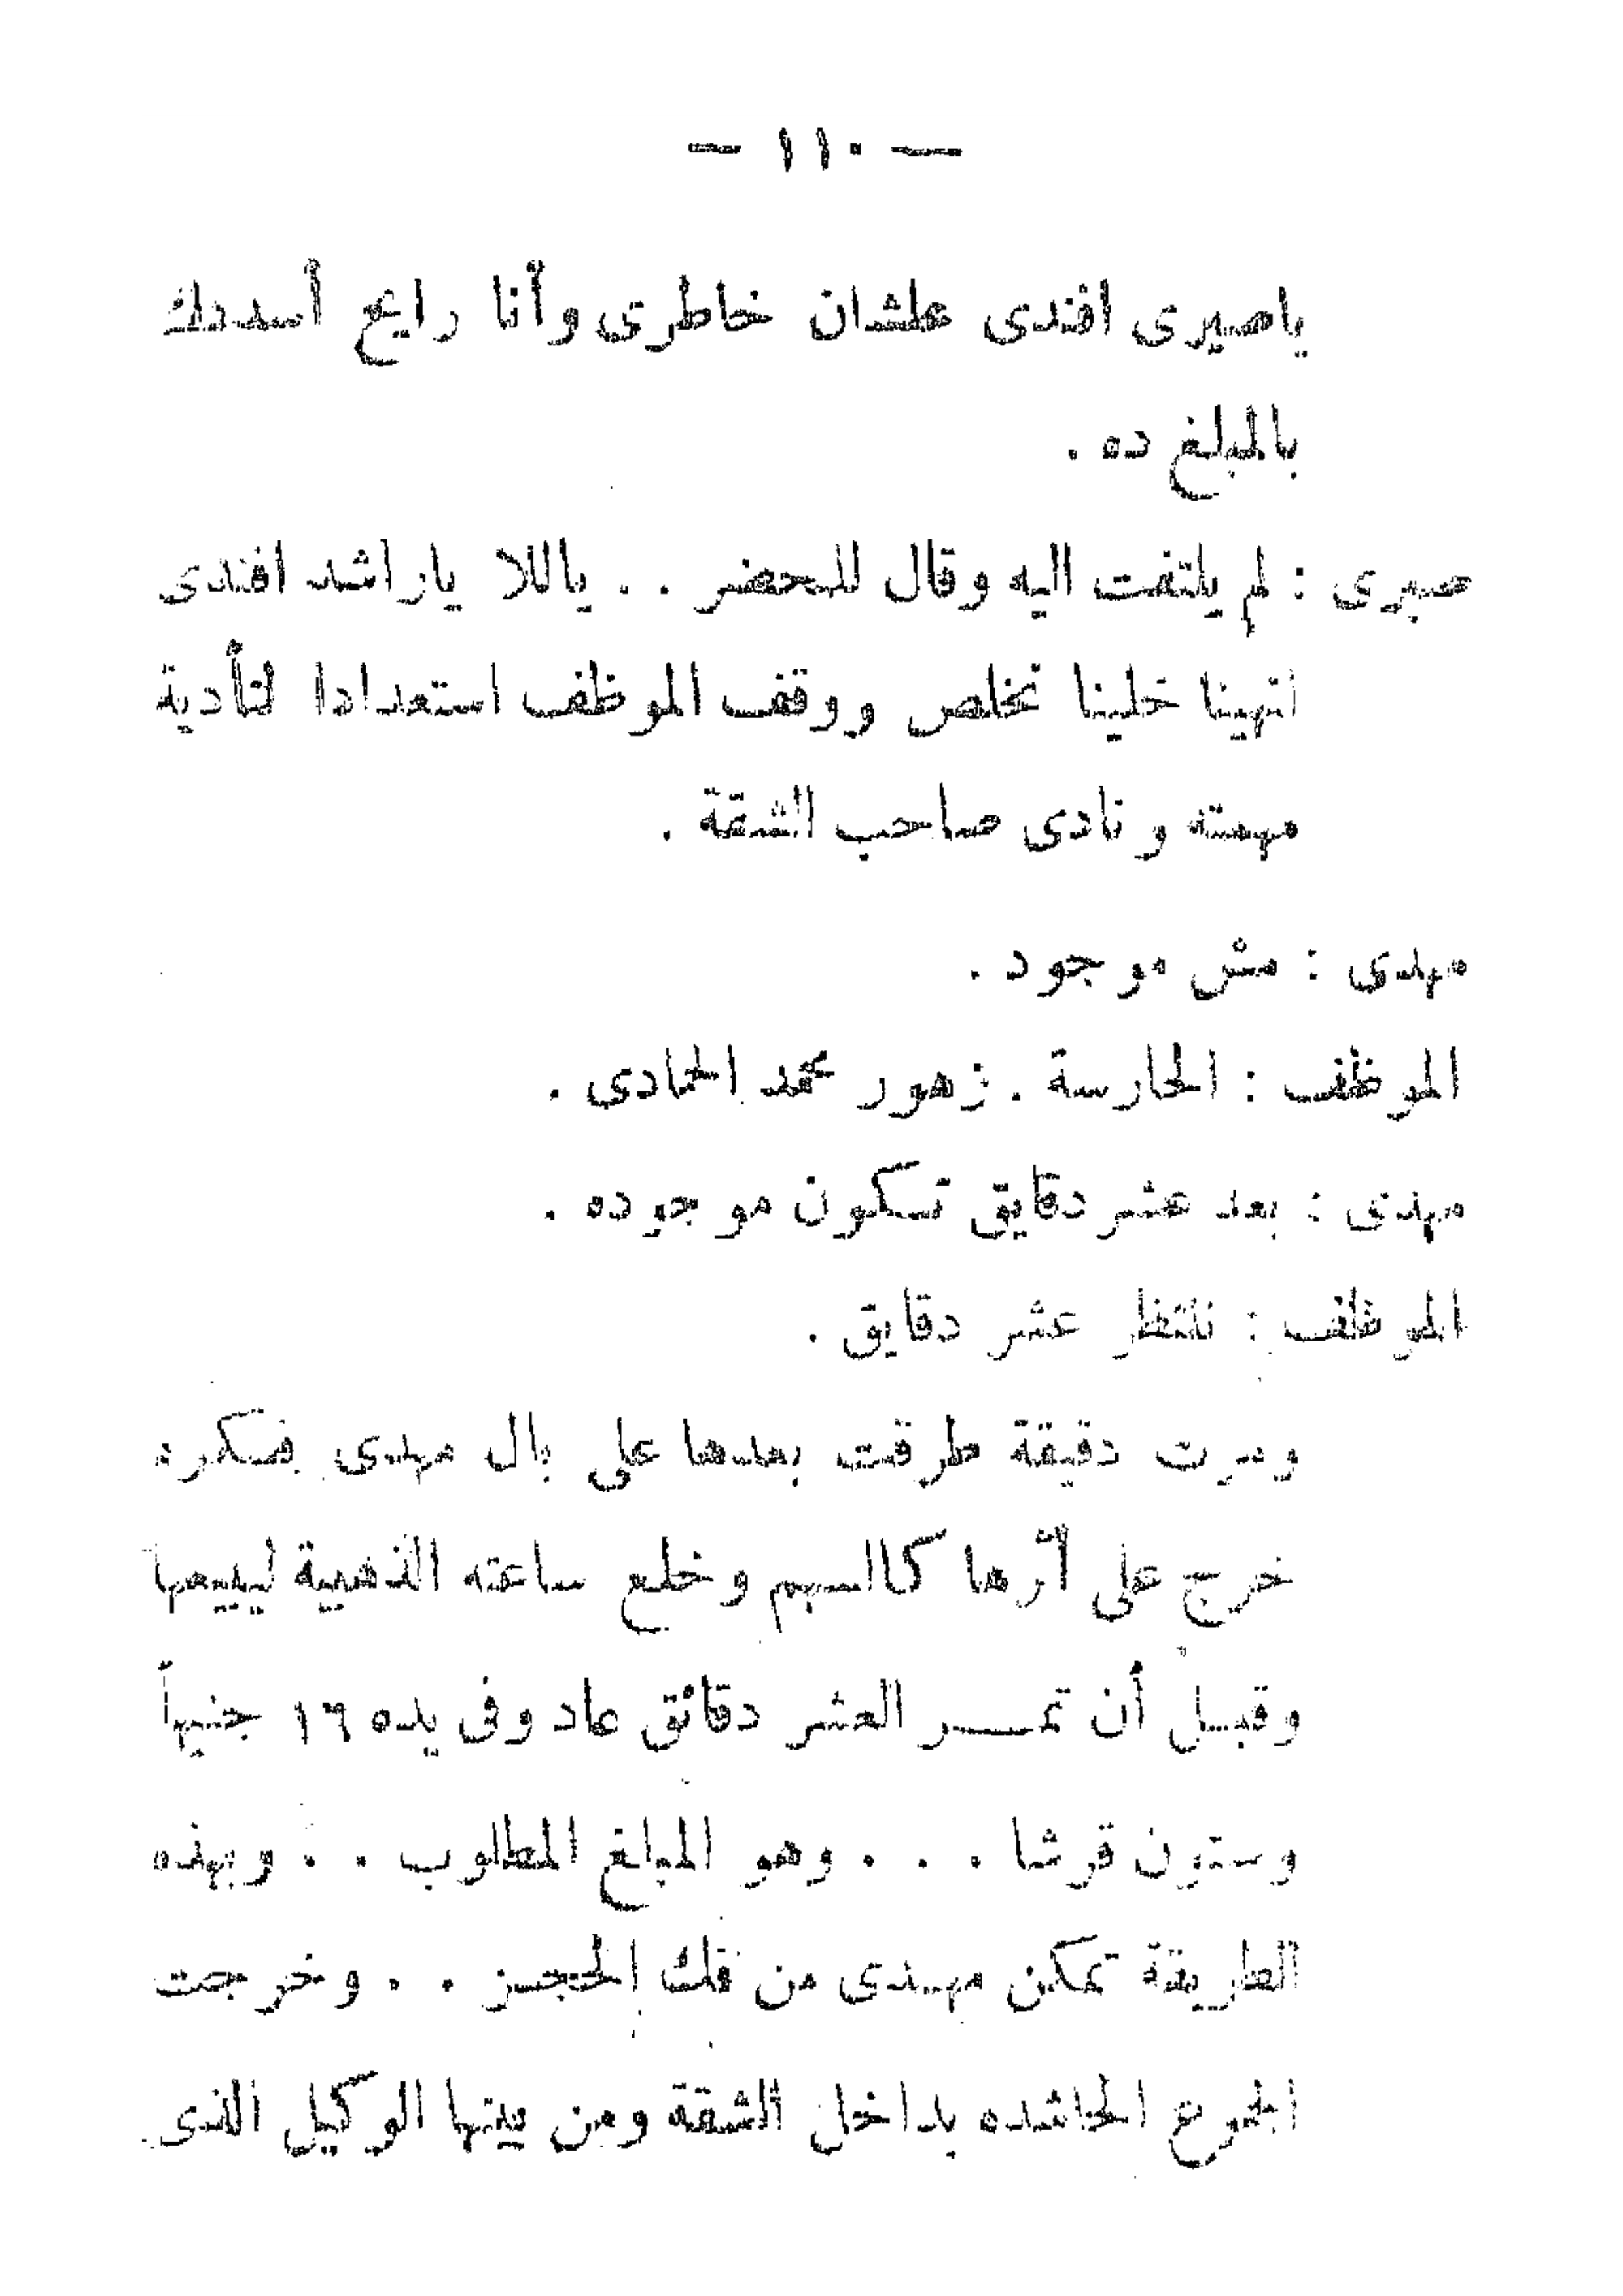 — ١١٠ —
ياصبرى افندى علشان خاطرى وأنا رايح أسددلك
بالمبلغ ده .
صبرى : لم يلتفت اليه وقال للمحضر . . ياللا ياراشد افندى
انتهينا خلينا نخلص ووقف الموظف استعدادا لتأدية
مهمته ونادى صاحب الشقة .
مهدى : مش موجود .
الموظف : الحارسة . زهور محمد الحمادى .
مهدى : بعد عشر دقايق تكون موجوده .
الموظف : ننتظر عشر دقايق .
ومرت دقيقة طرقت بعدها على بال مهدى فكره
خرج على أثرها كالسهم وخلع ساعته الذهبية ليبيعها
وقبل أن تمر العشر دقائق عاد وفى يده ١٦ جنيهاً
وستون قرشا . . . وهو المبلغ المطلوب . . وبهذه
الطريقة تمكن مهدى من فك الحجز . . وخرجت
الجموع الحاشده بداخل الشقة ومن بينها الوكيل الذى